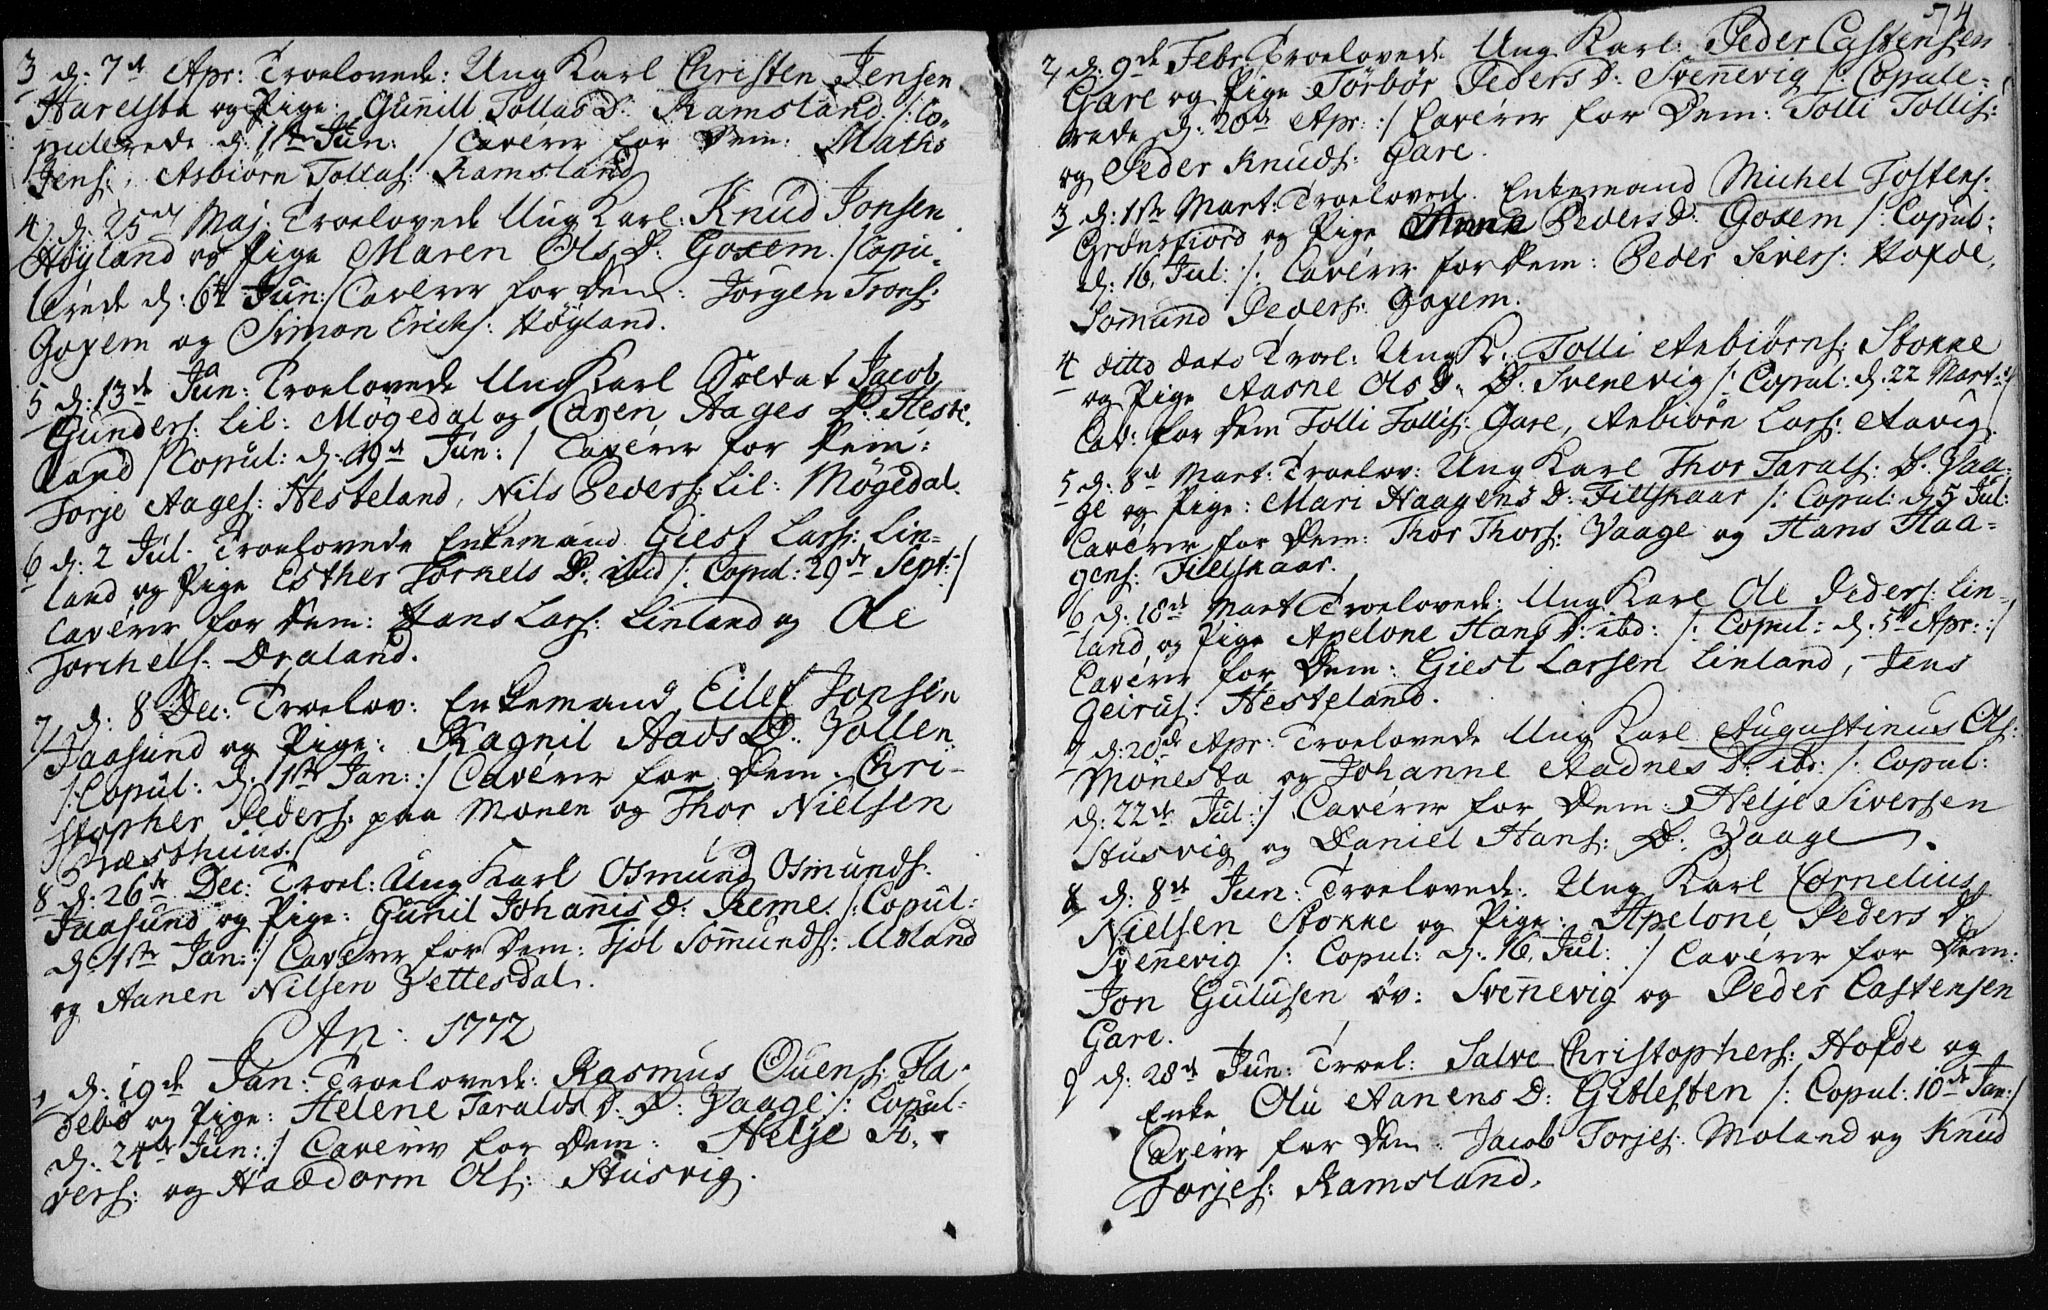 3 d: 7de Apr: Troelovede: Ung Karl Christen Jensen
Harelsta og Pige: Gunill Tollas D: Ramsland /: Co-
pulerede d: 11te Jun: / Cavérer for Dem: Mathis
Jens: Asbiørn Tollafs: Ramsland
4 d: 25de Maj: Troelovede Ung Karl: Knud Jonsen
Høyland og Pige Maren Ols D: Goxem. /: Copu-
lerede d: 6te Jun: / Caverer for Dem: Jørgen Trons:
Goxem og Simon Erichs: Høyland.
5 d: 13de Jun: Troelovede Ung Karl Soldat Jacob
Gunders: Lil: Møgedal og Caren Aages D: Heste-
land /: Copul: d: 19de Jun: / Cavérer for Dem:
Torje Aages: Hesteland, Nils Peders: Lil: Møgedal.
6 d: 2 Jul. Troelovede Enkemand Giest Lars: Lin-
land og Pige Esther Torkels D: ibid /: Copul: 29de Sept: /
Cavérer for Dem: Hans Lars: Linland og Ole
Torchels: Draland.
7 d: 8 Dec: Troelov: Enkemand Eilef Jonsen
Jaasund og Pige: Ragnil Aads D: Vollen
/: Copul: d: 1ste Jan: :/ Cavérer for Dem: Chri-
stopher Peders: paa Monen og Thor Nielsen
Præsthuus.
8 d: 26de Dec: Troel: Ung Karl Osmund Osmunds:
Jaasund og Pige: Gunil Johannis D: Reme. /: Copul:
d: 1ste Jan: :/ Cavérer for Dem: Tjøl Sommunds: Udland
og Aanen Nilsen Vettesdal.
An: 1772
1 d: 19de Jan: Troelovede: Rasmus Ouens: Fla-
debo og Pige: Helene Taralds D: D: Vaage /: Copul:
d: 24de Jun: :/ Caverer for Dem: Helje Si-
vers: og Haddorm Ols: Husvig.
74
2 d: 9de Febr: Troelovede Ung Karl: Peder Castensen
Gare og Pige Torbor Peders D: Svennevig /: Copule-
rede d: 20de Apr: :/ Cavérer for Dem: Tolli Tollis:
og Peder Knuds: Gare.
3 d: 1ste Mart: Troeloved. Enkemand Michel Tostens:
Grønsfiord og Pige Anne Peders D: Goxem /: Copul:
d: 16 Jul: :/: Cavérer for Dem: Peder Sivers: Hofde,
Somund Peders: Goxem.
4 ditto dato Troel: Ung K: Tolli Anbiørns: Stokke
og Pige Aasne Ols D: D: Svenevig /: Copul: d: 22 Mart: :/
Cav: for Dem Tolli Tollis: Gare, Anbiørn Lars: Aavig.
5 d: 8de Mart: Troelov: Ung Karl Thor Taralls: D. Vaa-
ge og Pige: Mari Haagens D: Fillskaar /: Copul: d: 5 Jul:
Cavérer for Dem: Thor Thors: Vaage og Hans Haa-
gens: Fielskaar.
6 d: 18de Mart Troelovede: Ung Karl Ole Peders: Lin-
land og Pige Apelone Hans D: ibd: /: Copul: d: 5te Apr: :/
Cavérer for Dem: Giest Larsen Linland, Jens
Geirus: Hesteland.
7 d: 20de Apr: Troelovede Ung Karl Augustinus Ols:
Mønesta og Johanne Aadnes D: ibd: /: Copul:
d: 22de Jul: :/ Cavérer for Dem: Helje Siversen
Husvig og Daniel Hans: D. Vaage.
8 d: 8de Jun: Troelovede: Ung Karl Cornelius
Nielsen Stokke og Pige: Apelone Peders D
Svenevig /: Copul: d: 16 Jul: :/ Cavérer for Dem:
Jon Gulusen øv: Svennevig og Peder Castensen
Gare.
9 d: 28de Jun: Troel: Salve Christophers: Hofde og
Enke Olu Aanens D: Gitlesten /: Copul: 10de Jan: :/
Cavérer for Dem: Jacob Torjes: Moland og Knud
Torjes: Ramsland.